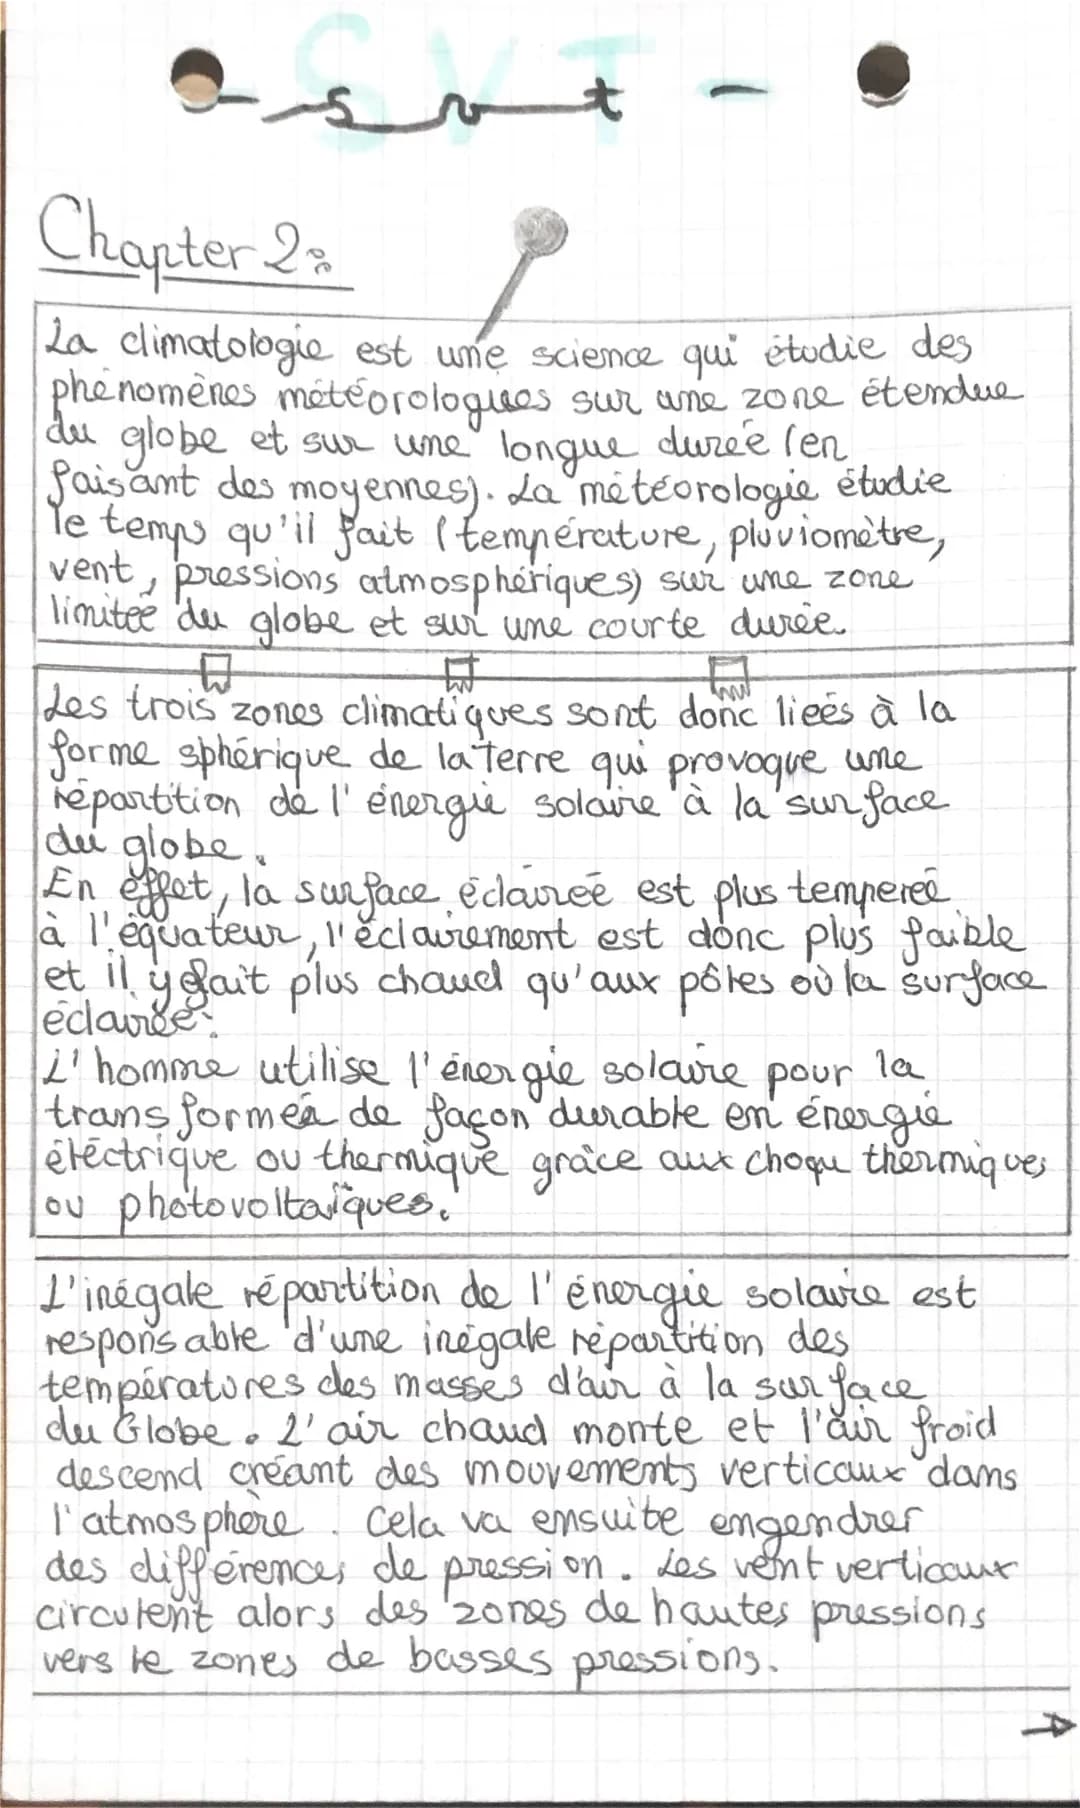 SVT
- svt -
Chapter 2:
La climatologie est une science qui étudie des
phénomènes météorologiques sur une zone étendue
du globe et sur une longue durée (en
faisant des moyennes). La météorologie étudie
le temps qu'il fait (température, pluviomètre,
vent, pressions atmosphériques) sur une zone
limitée du globe et sur une courte durée.
Les trois zones climatiques sont donc liées à la
forme sphérique de la Terre qui provoque une
répartition de l'énergie solaire à la surface
du globe.
En effet, la surface éclairée est plus temperée
à l'équateur, l'éclairement est donc plus faible
et il y fait plus chaud qu'aux pôles où la surface
éclairée.
L'homme utilise l'énergie solaire pour la
de façon durable en énergie
éléctrique ou thermique grâce aux choqu thermiques
ou photovoltaïques.
L'inégale répartition de l'énergie solaire est
responsable d'une inégale répartition des
températures des masses d'air à la surface
du Globe. L'air chaud monte et l'air froid
descend créant des mouvements verticaux dans
l'atmosphère. Cela va ensuite engendrer
des différences de pression. Les vent verticaux
circulent alors des zones de hautes pressions
vers le zones de basses pressions.